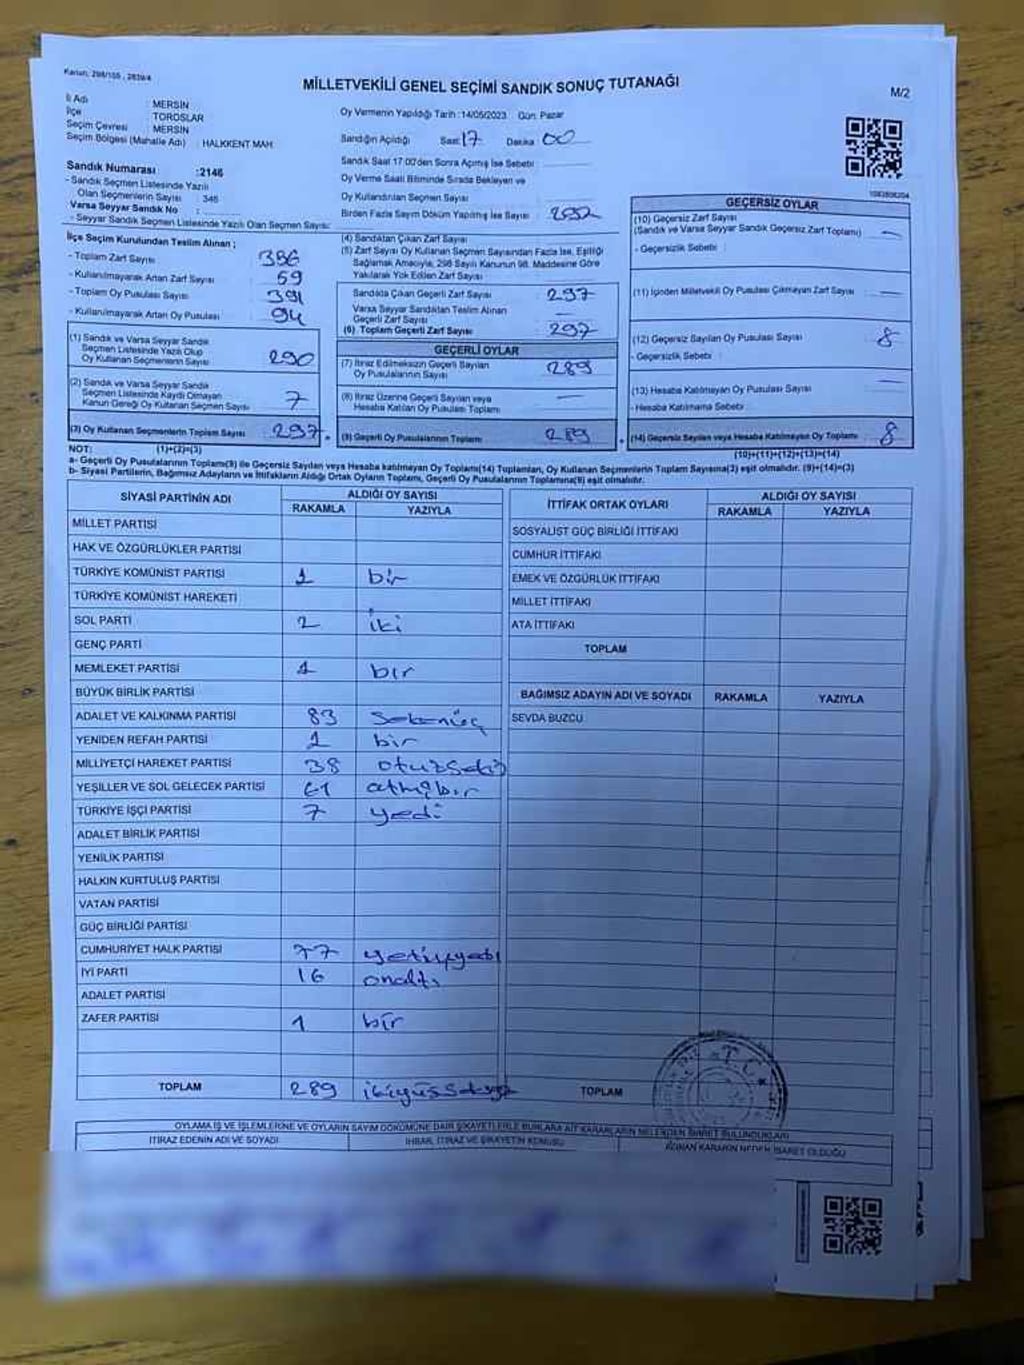 Kanun: 298/105 , 2839/4
MİLLETVEKİLİ GENEL SEÇİMİ SANDIK SONUÇ TUTANAĞI
M/2
İl Adı : MERSİN
İlçe : TOROSLAR
Seçim Çevresi : MERSİN
Seçim Bölgesi (Mahalle Adı) : HALKKENT MAH.
Sandık Numarası :2146
- Sandık Seçmen Listesinde Yazılı
Olan Seçmenlerin Sayısı : 346
Varsa Seyyar Sandık No :
- Seyyar Sandık Seçmen Listesinde Yazılı Olan Seçmen Sayısı:
Oy Vermenin Yapıldığı Tarih :14/05/2023 Gün: Pazar
Sandığın Açıldığı Saat 17 Dakika 00
Sandık Saat 17:00'den Sonra Açılmış İse Sebebi :
Oy Verme Saati Bitiminde Sırada Bekleyen ve
Oy Kullandırılan Seçmen Sayısı :
Birden Fazla Sayım Döküm Yapılmış İse Sayısı :
İlçe Seçim Kurulundan Teslim Alınan ;
- Toplam Zarf Sayısı 386
- Kullanılmayarak Artan Zarf Sayısı 59
- Toplam Oy Pusulası Sayısı 391
- Kullanılmayarak Artan Oy Pusulası 94
(1) Sandık ve Varsa Seyyar Sandık
Seçmen Listesinde Yazılı Olup
Oy Kullanan Seçmenlerin Sayısı 290
(2) Sandık ve Varsa Seyyar Sandık
Seçmen Listesinde Kaydı Olmayan
Kanun Gereği Oy Kullanan Seçmen Sayısı 7
(3) Oy Kullanan Seçmenlerin Toplam Sayısı 297
(1)+(2)=(3)
(4) Sandıktan Çıkan Zarf Sayısı
(5) Zarf Sayısı Oy Kullanan Seçmen Sayısından Fazla İse, Eşitliği
Sağlamak Amacıyla, 298 Sayılı Kanunun 98. Maddesine Göre
Yakılarak Yok Edilen Zarf Sayısı :
Sandıkta Çıkan Geçerli Zarf Sayısı 297
Varsa Seyyar Sandıktan Teslim Alınan
Geçerli Zarf Sayısı —
(6) Toplam Geçerli Zarf Sayısı 297
GEÇERLİ OYLAR
(7) İtiraz Edilmeksizin Geçerli Sayılan
Oy Pusulalarının Sayısı 289
(8) İtiraz Üzerine Geçerli Sayılan veya
Hesaba Katılan Oy Pusulası Toplamı —
(9) Geçerli Oy Pusulalarının Toplamı 289
GEÇERSİZ OYLAR
(10) Geçersiz Zarf Sayısı
(Sandık ve Varsa Seyyar Sandık Geçersiz Zarf Toplamı) —
- Geçersizlik Sebebi :
(11) İçinden Milletvekili Oy Pusulası Çıkmayan Zarf Sayısı —
(12) Geçersiz Sayılan Oy Pusulası Sayısı 8
- Geçersizlik Sebebi :
(13) Hesaba Katılmayan Oy Pusulası Sayısı —
- Hesaba Katılmama Sebebi :
(14) Geçersiz Sayılan veya Hesaba Katılmayan Oy Toplamı 8
(10)+(11)+(12)+(13)=(14)
NOT:
a- Geçerli Oy Pusulalarının Toplamı(9) ile Geçersiz Sayılan veya Hesaba katılmayan Oy Toplamı(14) Toplamları, Oy Kullanan Seçmenlerin Toplam Sayısına(3) eşit olmalıdır. (9)+(14)=(3)
b- Siyasi Partilerin, Bağımsız Adayların ve İttifakların Aldığı Ortak Oyların Toplamı, Geçerli Oy Pusulalarının Toplamına(9) eşit olmalıdır.
SİYASİ PARTİNİN ADI ALDIĞI OY SAYISI
RAKAMLA YAZIYLA
MİLLET PARTİSİ
HAK VE ÖZGÜRLÜKLER PARTİSİ
TÜRKİYE KOMÜNİST PARTİSİ 1 bir
TÜRKİYE KOMÜNİST HAREKETİ
SOL PARTİ 2 iki
GENÇ PARTİ
MEMLEKET PARTİSİ 1 bir
BÜYÜK BİRLİK PARTİSİ
ADALET VE KALKINMA PARTİSİ 83
YENİDEN REFAH PARTİSİ 1 bir
MİLLİYETÇİ HAREKET PARTİSİ 38
YEŞİLLER VE SOL GELECEK PARTİSİ 61 atmışbir
TÜRKİYE İŞÇİ PARTİSİ 7 yedi
ADALET BİRLİK PARTİSİ
YENİLİK PARTİSİ
HALKIN KURTULUŞ PARTİSİ
VATAN PARTİSİ
GÜÇ BİRLİĞİ PARTİSİ
CUMHURİYET HALK PARTİSİ 77
İYİ PARTİ 16 onaltı
ADALET PARTİSİ
ZAFER PARTİSİ 1 bir
TOPLAM 289
İTTİFAK ORTAK OYLARI ALDIĞI OY SAYISI
RAKAMLA YAZIYLA
SOSYALİST GÜÇ BİRLİĞİ İTTİFAKI
CUMHUR İTTİFAKI
EMEK VE ÖZGÜRLÜK İTTİFAKI
MİLLET İTTİFAKI
ATA İTTİFAKI
TOPLAM
BAĞIMSIZ ADAYIN ADI VE SOYADI RAKAMLA YAZIYLA
SEVDA BUZCU
TOPLAM
T.C.
OYLAMA İŞ VE İŞLEMLERİNE VE OYLARIN SAYIM DÖKÜMÜNE DAİR ŞİKAYETLERLE BUNLARA AİT KARARLARIN NELERDEN İBARET BULUNDUKLARI
İTİRAZ EDENİN ADI VE SOYADI İHBAR, İTİRAZ VE ŞİKAYETİN KONUSU ALINAN KARARIN NEDEN İBARET OLDUĞU